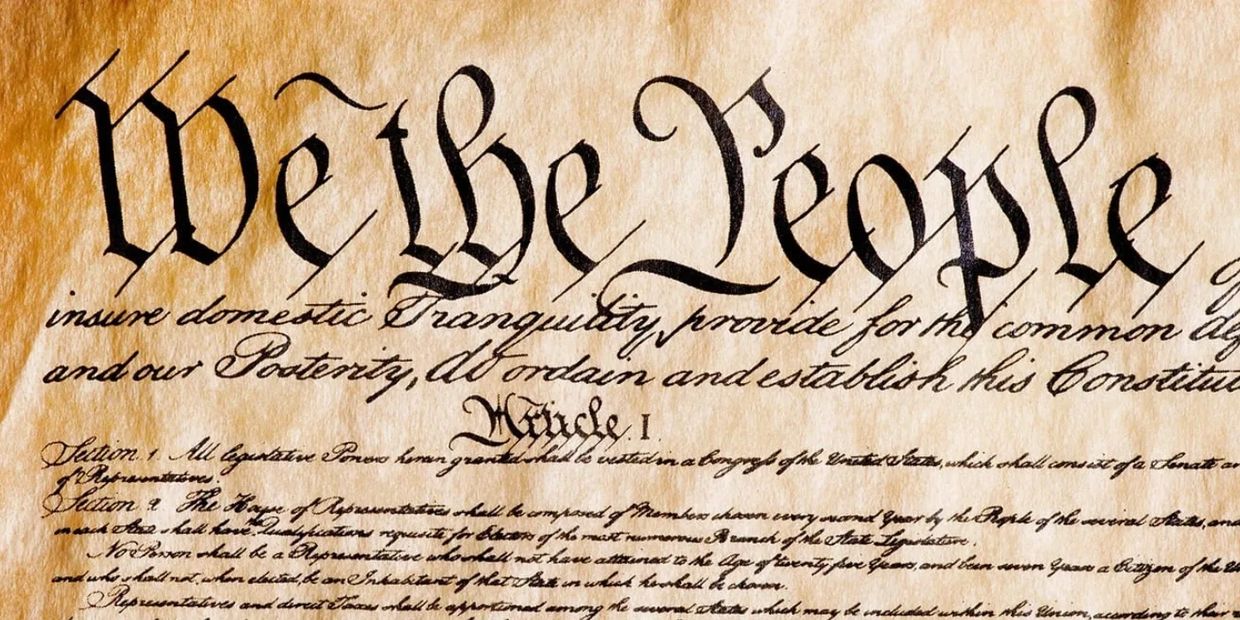 We the People
insure domestic Tranquility, provide for the common
and our Posterity, do ordain and establish this
Article. I.
Section. 1. All legislative Powers herein granted shall be vested in a Congress of the United States, which shall consist of a Senate
of Representatives.
Section. 2. The House of Representatives shall be composed of Members chosen every second Year by the People of the several States, and
in each State shall have the Qualifications requisite for Electors of the most numerous Branch of the State Legislature.
No Person shall be a Representative who shall not have attained to the Age of twenty five Years, and been seven Years a Citizen of the
and who shall not, when elected, be an Inhabitant of that State in which he shall be chosen.
Representatives and direct Taxes shall be apportioned among the several States which may be included within this Union, according to their